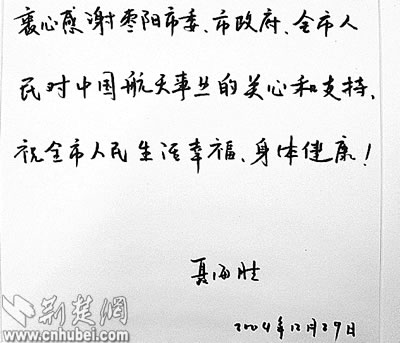 衷心感谢枣阳市委、市政府、全市人
民对中国航天事业的关心和支持、
祝全市人民生活幸福、身体健康！
聂海胜
2004年12月29日
荆楚网
www.cnhubei.com